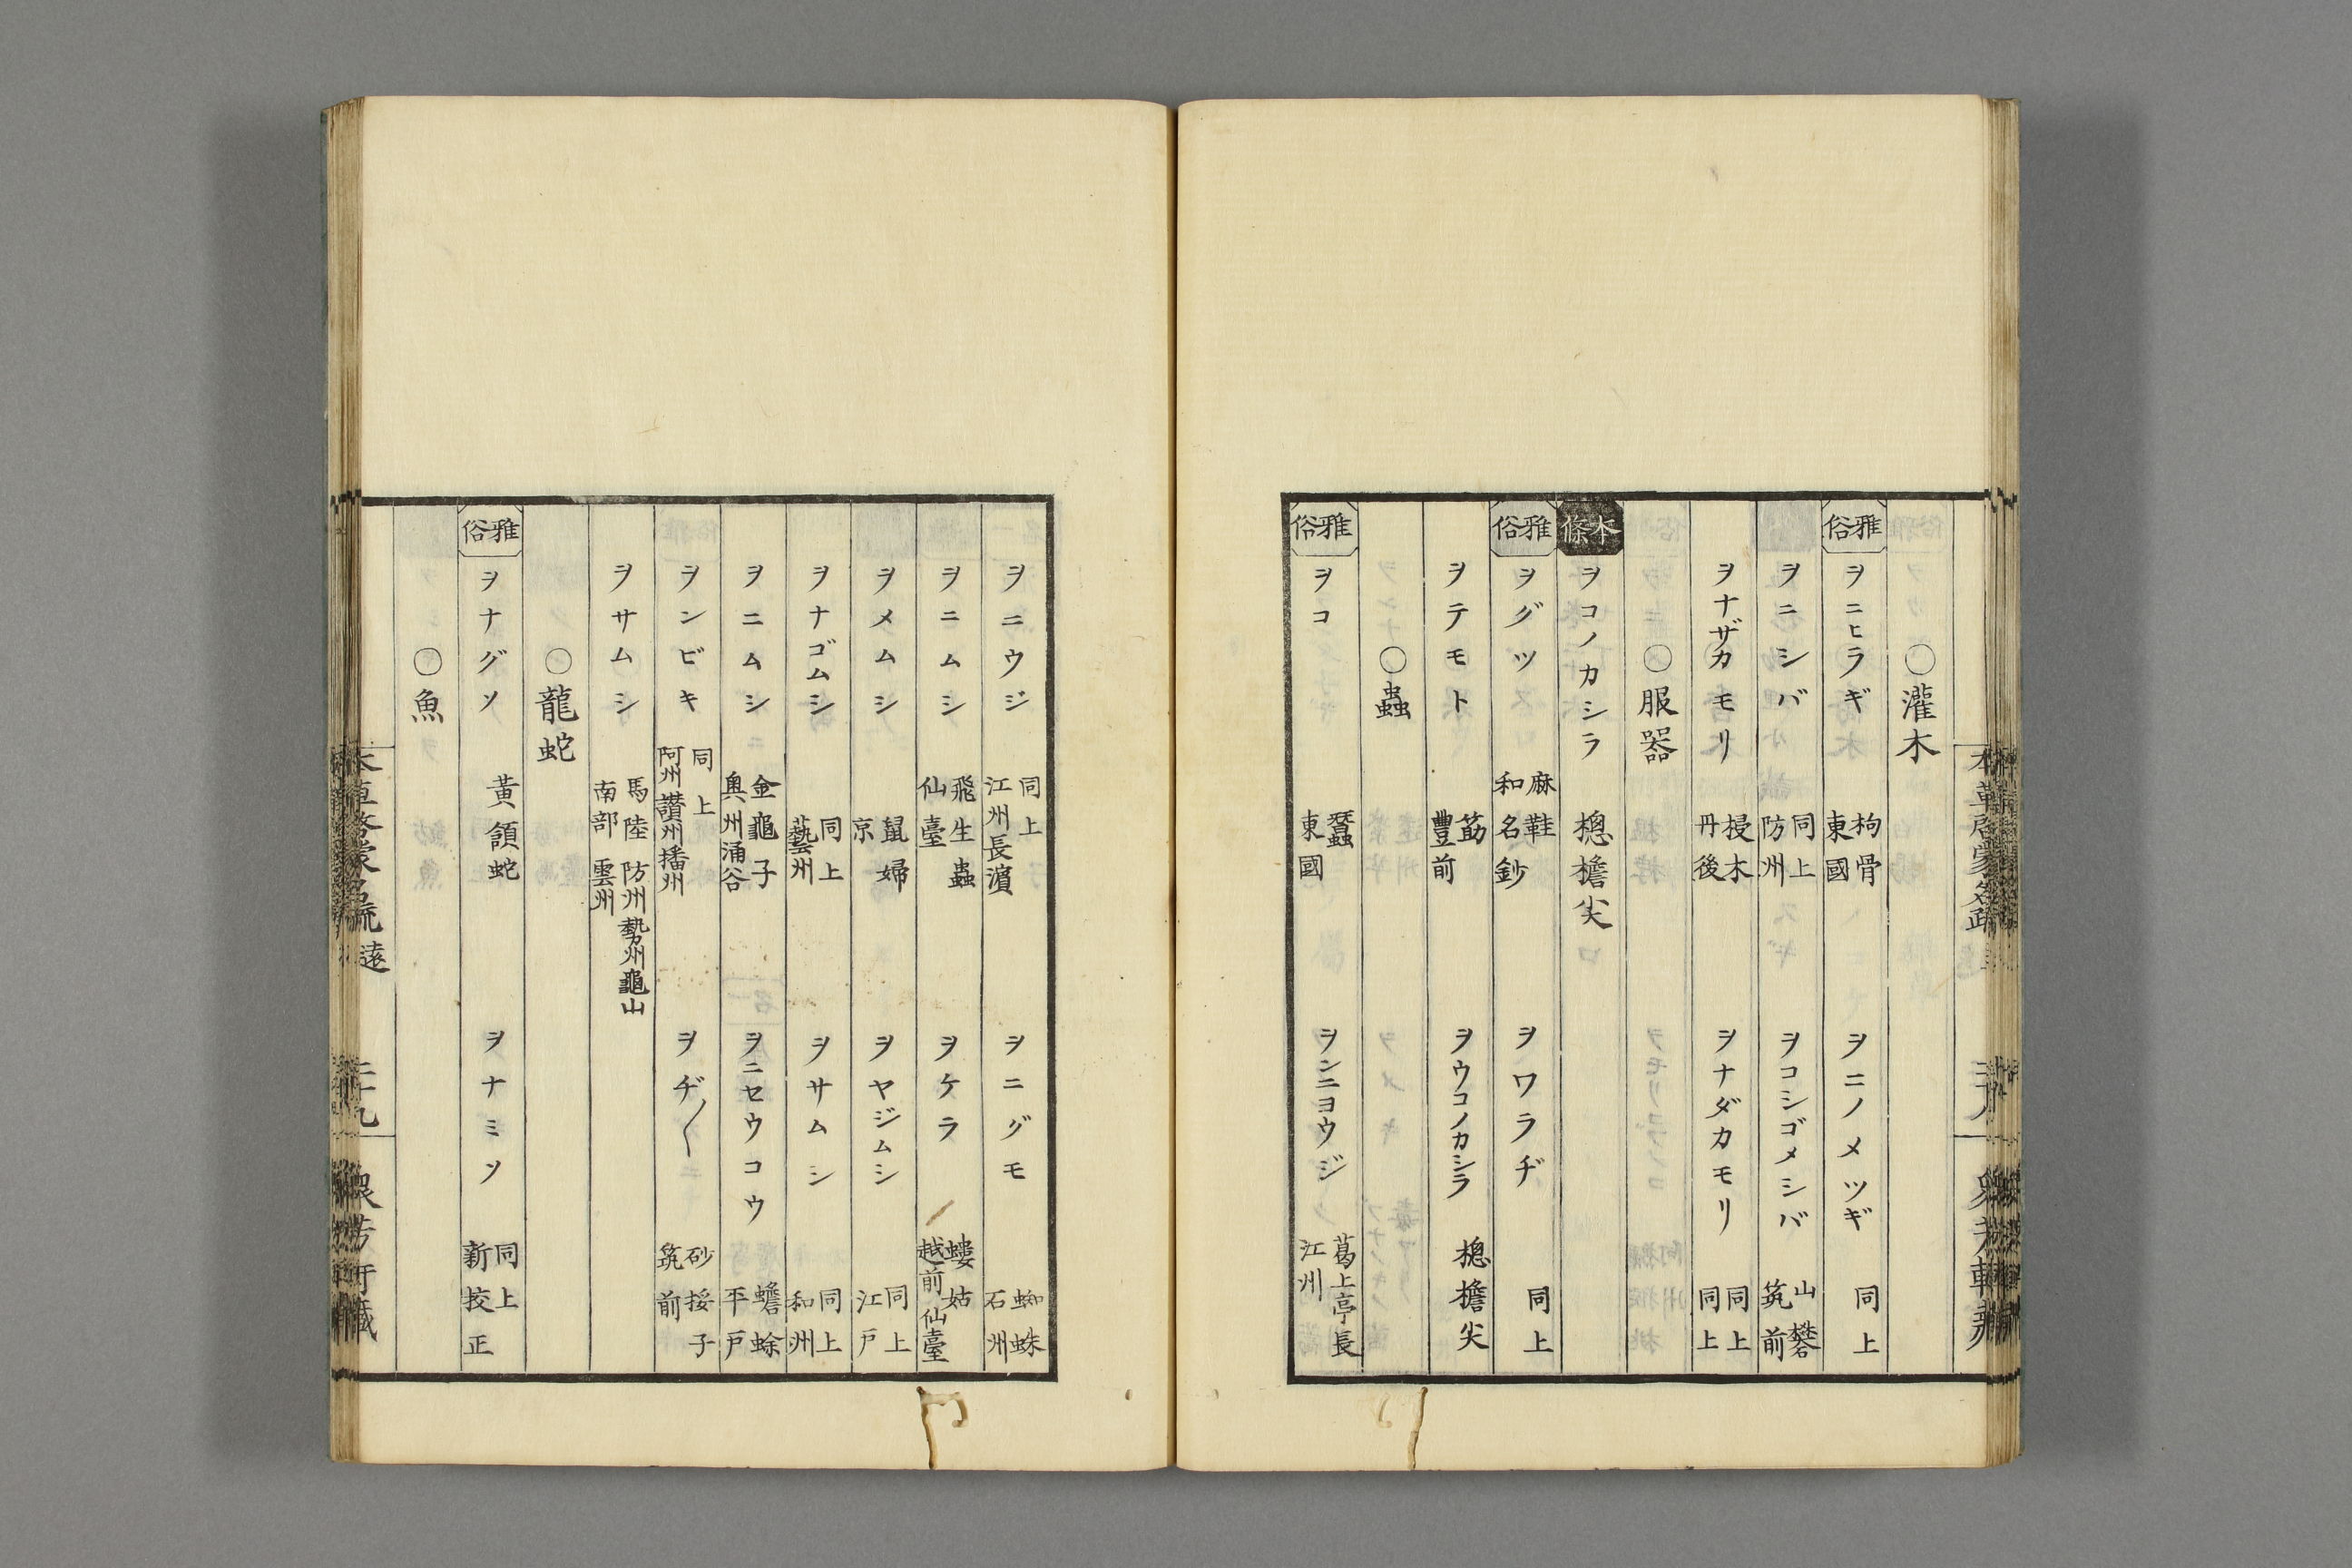 〇灌木
雅俗 ヲニヒラギ 枸骨 東國 ヲニノメツギ 同上
ヲニシバ 同上 防州 ヲコシゴメシバ 山礬 筑前
ヲナザカモリ 杸木 丹後 ヲナダカモリ 同上 同上
〇服器
本條 ヲコノカシラ 楤檐尖
雅俗 ヲグツ 麻鞋 和名鈔 ヲワラヂ 同上
ヲテモト 筯 豐前 ヲウコノカシラ 楤檐尖
〇蟲
雅俗 ヲコ 蠶 東國 ヲンニヨウジ 葛上亭長 江州
ヲニウジ 同上 江州長濵 ヲニグモ 蜘蛛 石州
ヲニムシ 飛生蟲 仙臺 ヲケラ 螻姑 越前 仙臺
ヲメムシ 鼠婦 京 ヲヤジムシ 同上 江戸
ヲナゴムシ 同上 藝州 ヲサムシ 同上 和州
ヲニムシ 金龜子 奥州涌谷 ヲニセウコウ 蟾蜍 平戸
ヲンビキ 同上 阿州 讃州 播州 ヲヂ〱 砂挼子 筑前
ヲサムシ 馬陸 防州 勢州龜山 南部 雲州
〇龍蛇
雅俗 ヲナグソ 黃頷蛇 ヲナミソ 同上 新挍正
〇魚